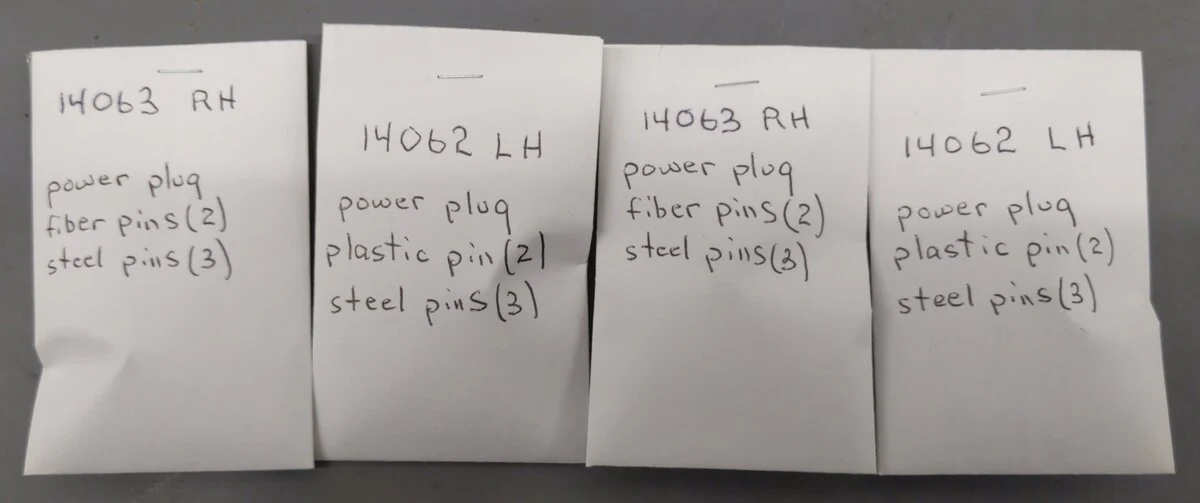 14063 RH
power plug
fiber pins(2)
steel pins(3)
14062 LH
power plug
plastic pin(2)
steel pins(3)
14063 RH
power plug
fiber pins(2)
steel pins(3)
14062 LH
power plug
plastic pin(2)
steel pins(3)